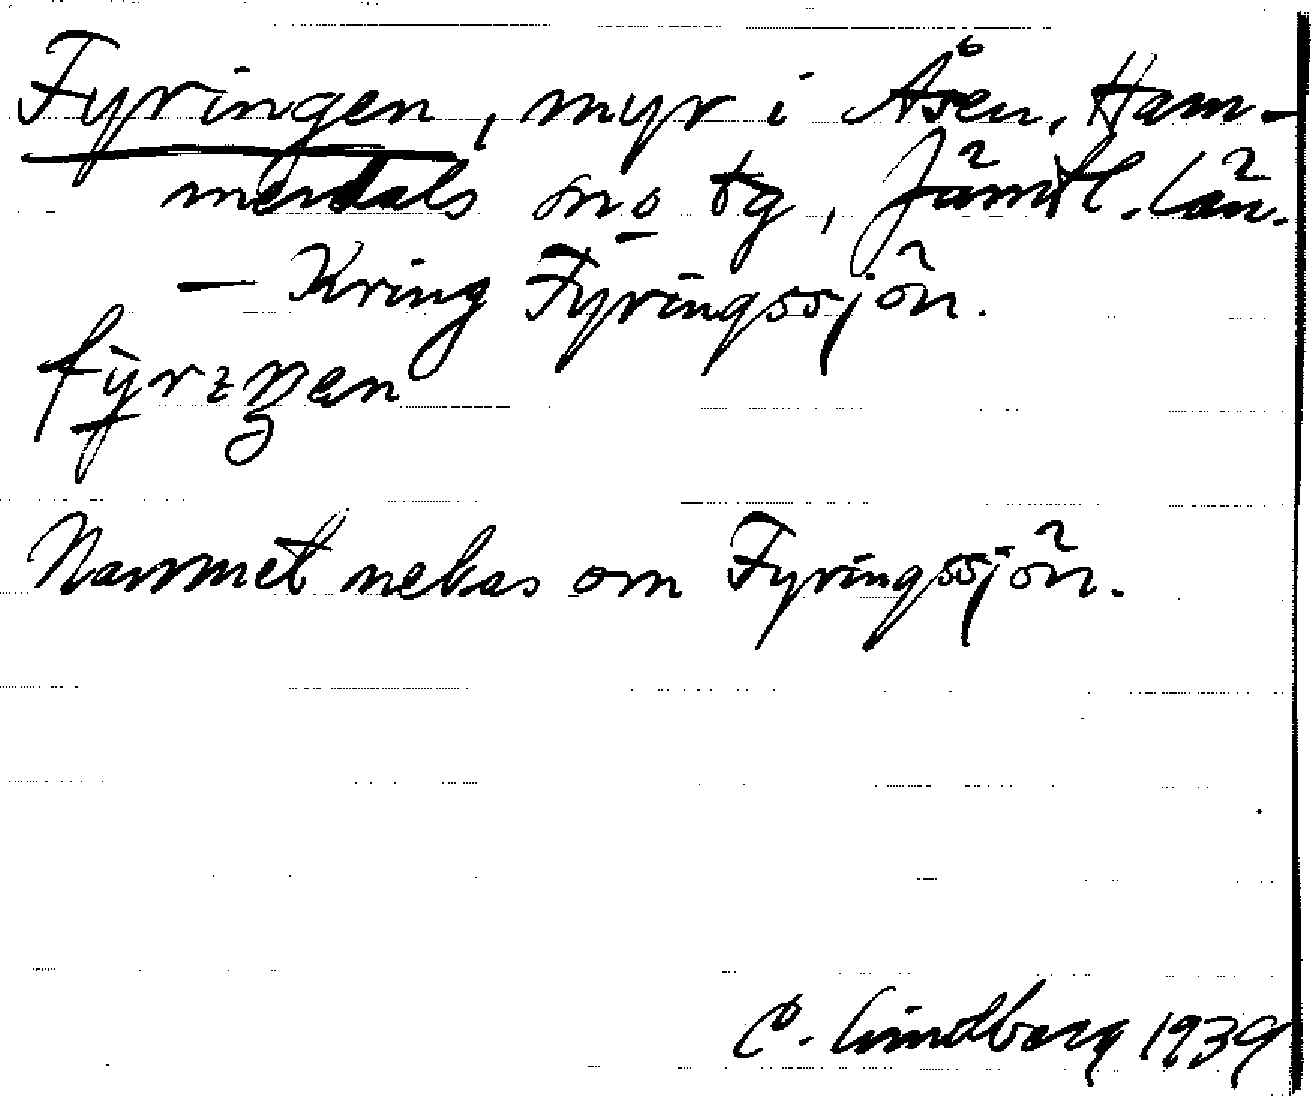 Fyringen, myr i Åsen, Ham-
merdals sn o tg, Jämtl. län.
— Kring Fyringssjön.
Namnet nekas om Fyringssjön.
C. Lindberg 1939